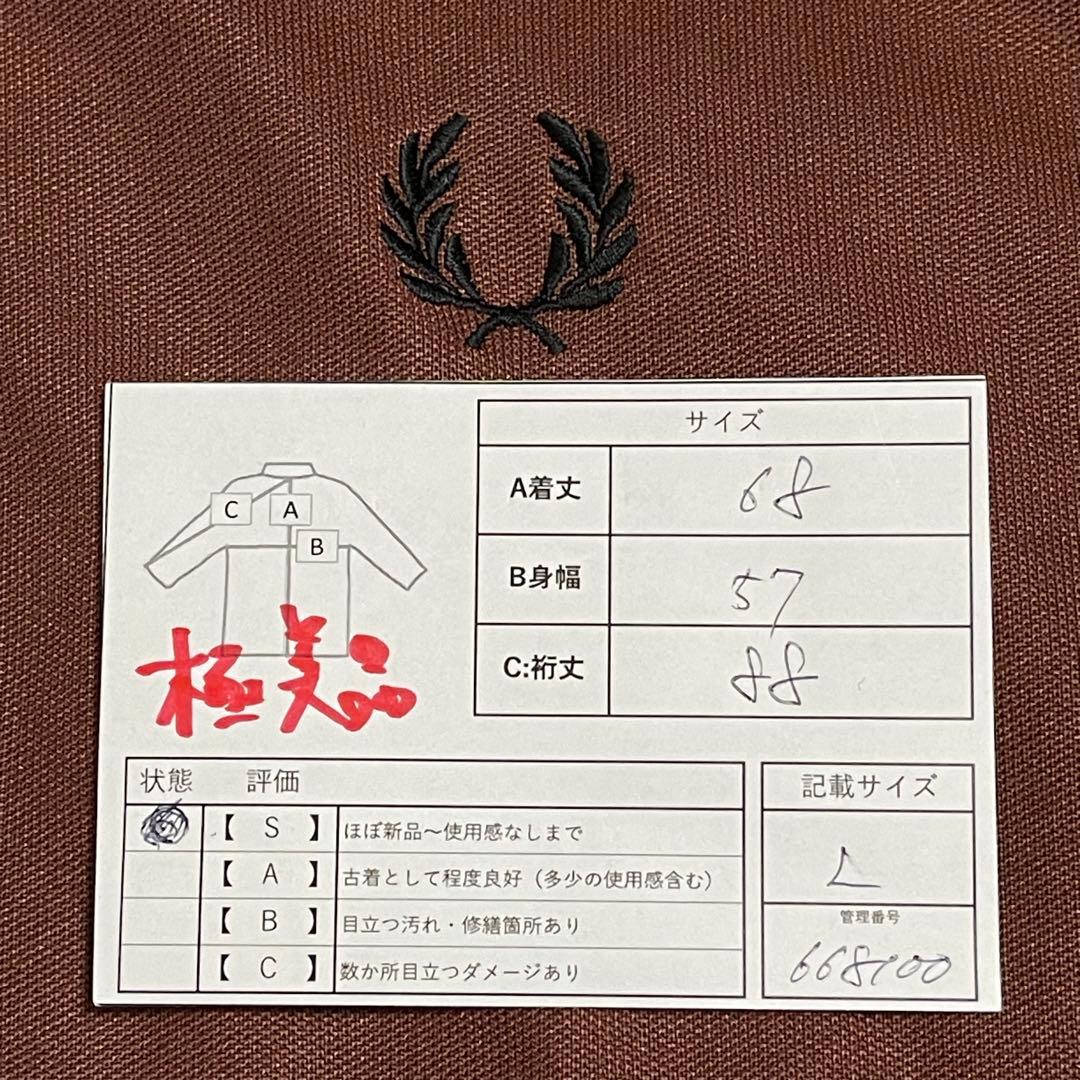 サイズ
A着丈 68
B身幅 57
C:裄丈 88
C A
B
極美品
状態 評価
【 S 】 ほぼ新品～使用感なしまで
【 A 】 古着として程度良好（多少の使用感含む）
【 B 】 目立つ汚れ・修繕箇所あり
【 C 】 数か所目立つダメージあり
記載サイズ
L
管理番号
668100